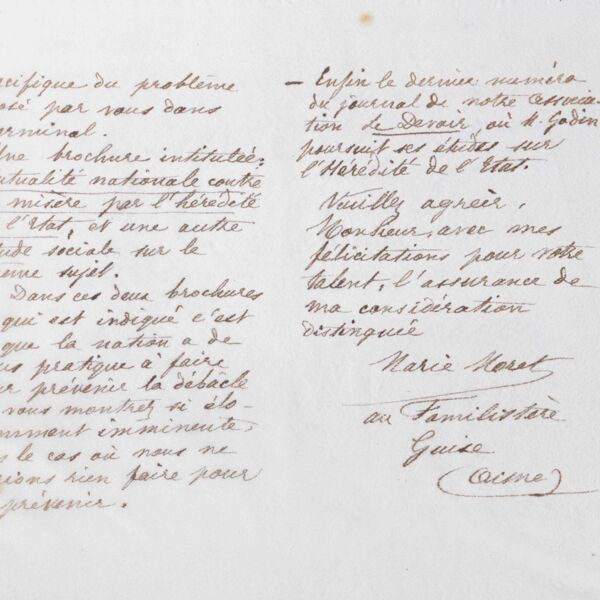 cifique du problème
osé par vous dans
erminal.
ne brochure intitulée:
utualité nationale contre
misère par l'hérédité
l'Etat, et une autre
tude sociale sur le
ême sujet.
Dans ces deux brochures
qui est indiqué c'est
que la nation a de
us pratique à faire
ur prévenir la débâcle
vous montrez si élo-
emment imminente,
s le cas où nous ne
rions rien faire pour
prévenir.
— Enfin le dernier numéro
du journal de notre Associa
tion Le Devoir, où M. Godin
poursuit ses études sur
l'Hérédité de l'Etat.
Veuillez agréer,
Monsieur, avec mes
félicitations pour votre
talent, l'assurance de
ma considération
distinguée
Marie Moret
au Familistère
Guise
(Aisne)